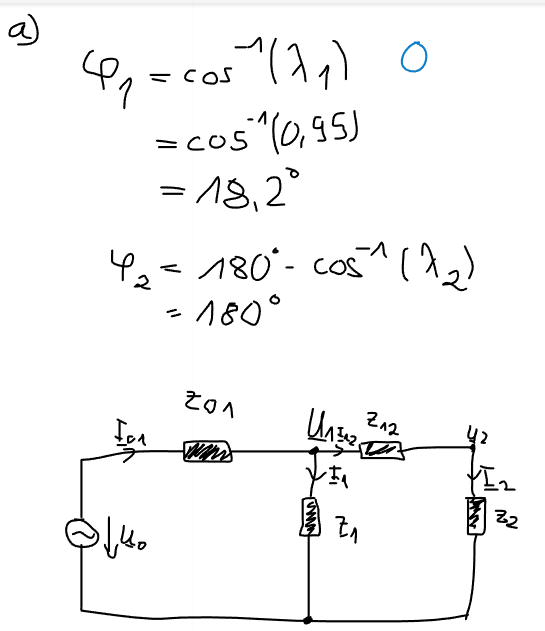 a)
φ₁ = cos⁻¹(λ₁) O
= cos⁻¹(0,95)
= 18,2°
φ₂ = 180° - cos⁻¹(λ₂)
= 180°
Z01
I01
U1
I12
Z12
U2
I1
I2
U0
Z1
Z2